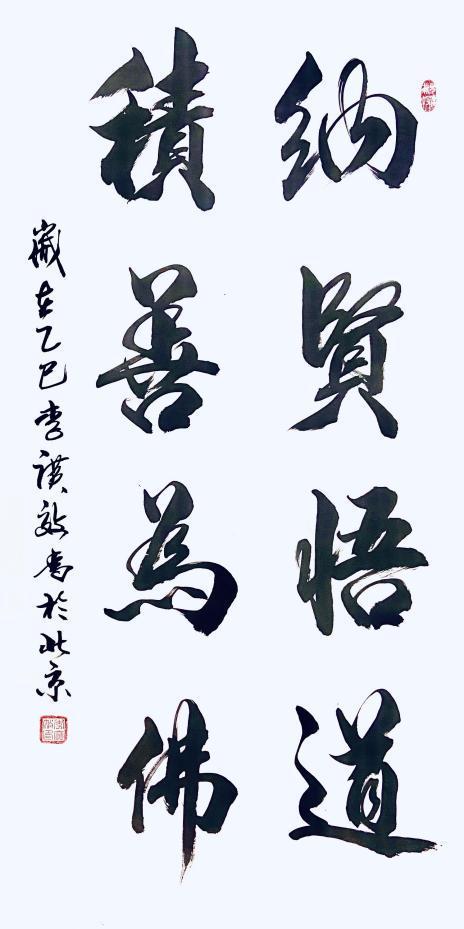 納賢悟道
積善為佛
歲在乙巳李謨效書於北京